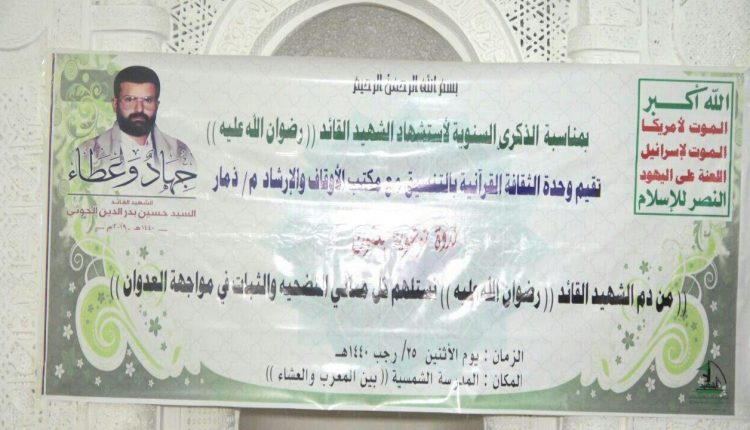 بسم الله الرحمن الرحيم
بمناسبة الذكرى السنوية لأستشهاد الشهيد القائد (( رضوان الله عليه ))
تقيم وحدة الثقافة القرآنية بالتنسيق مع مكتب الأوقاف والإرشاد م/ ذمار
ندوة
(( من دم الشهيد القائد (( رضوان الله عليه )) نستلهم كل معاني التضحيه والثبات في مواجهة العدوان ))
الزمان : يوم الأثنين ٢٥/ رجب ١٤٤٠هـ
المكان : المدرسة الشمسية (( بين المغرب والعشاء ))
الله أكبر
الموت لأمريكا
الموت لإسرائيل
اللعنة على اليهود
النصر للإسلام
جهادٌ وعطاء
الشهيد القائد
السيد حسين بدر الدين الحوثي
١٤٤٠هـ - ٢٠١٩م